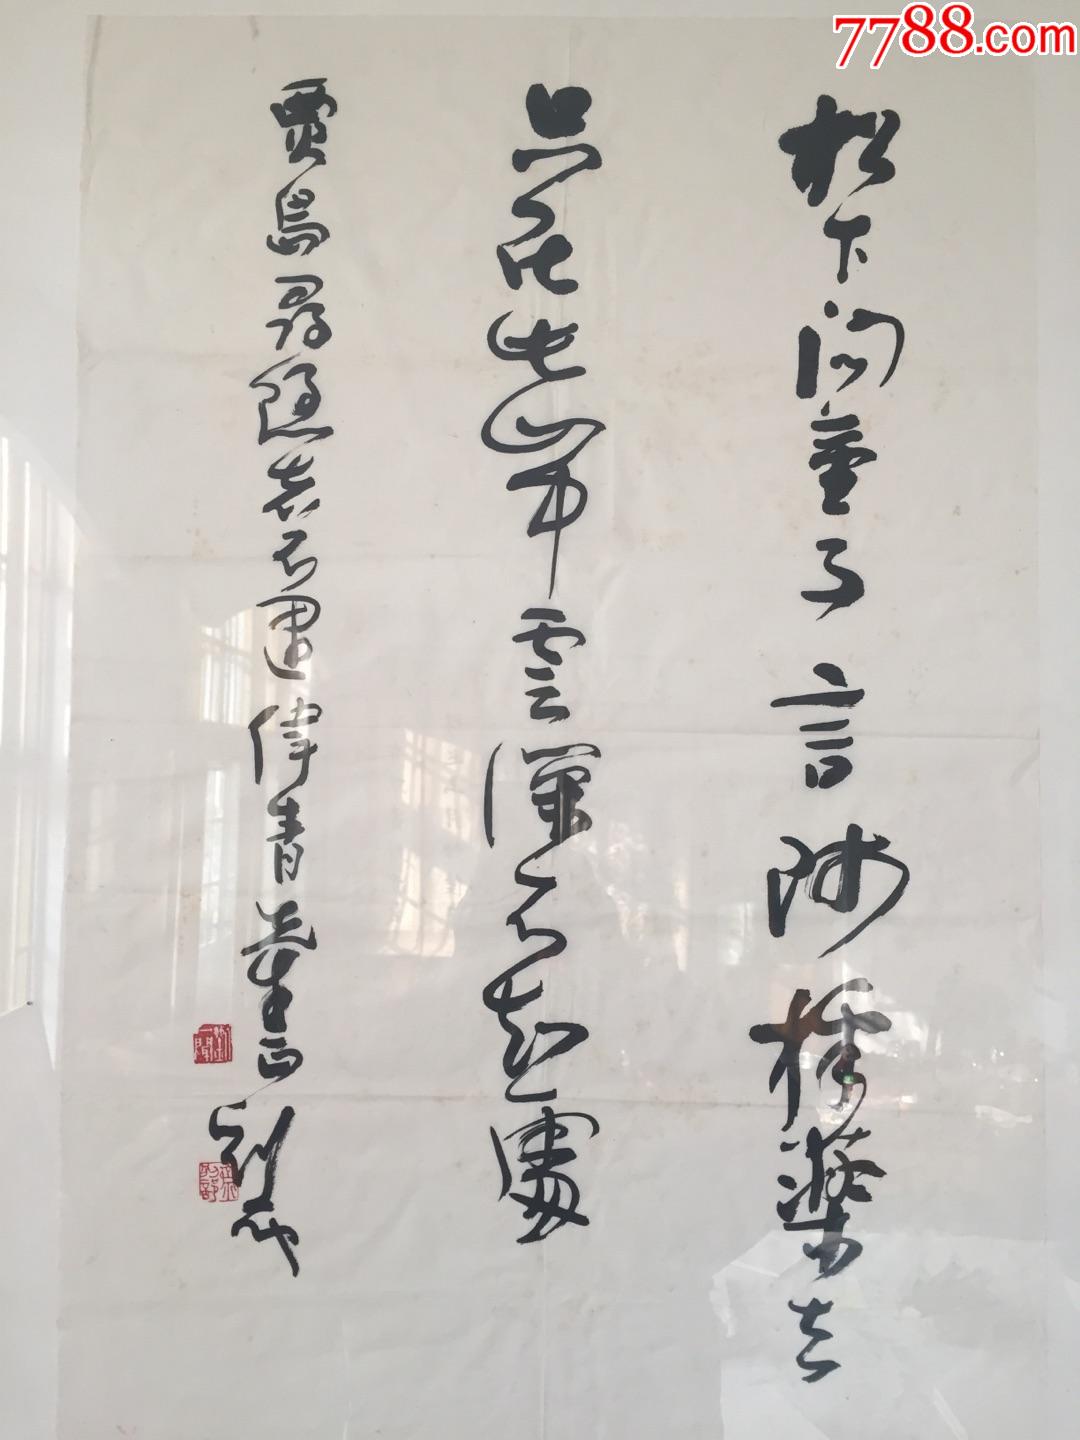 7788.com
松下问童子言师採藥去
只在此山中雲深不知處
贾岛尋隱者不遇偉青先生